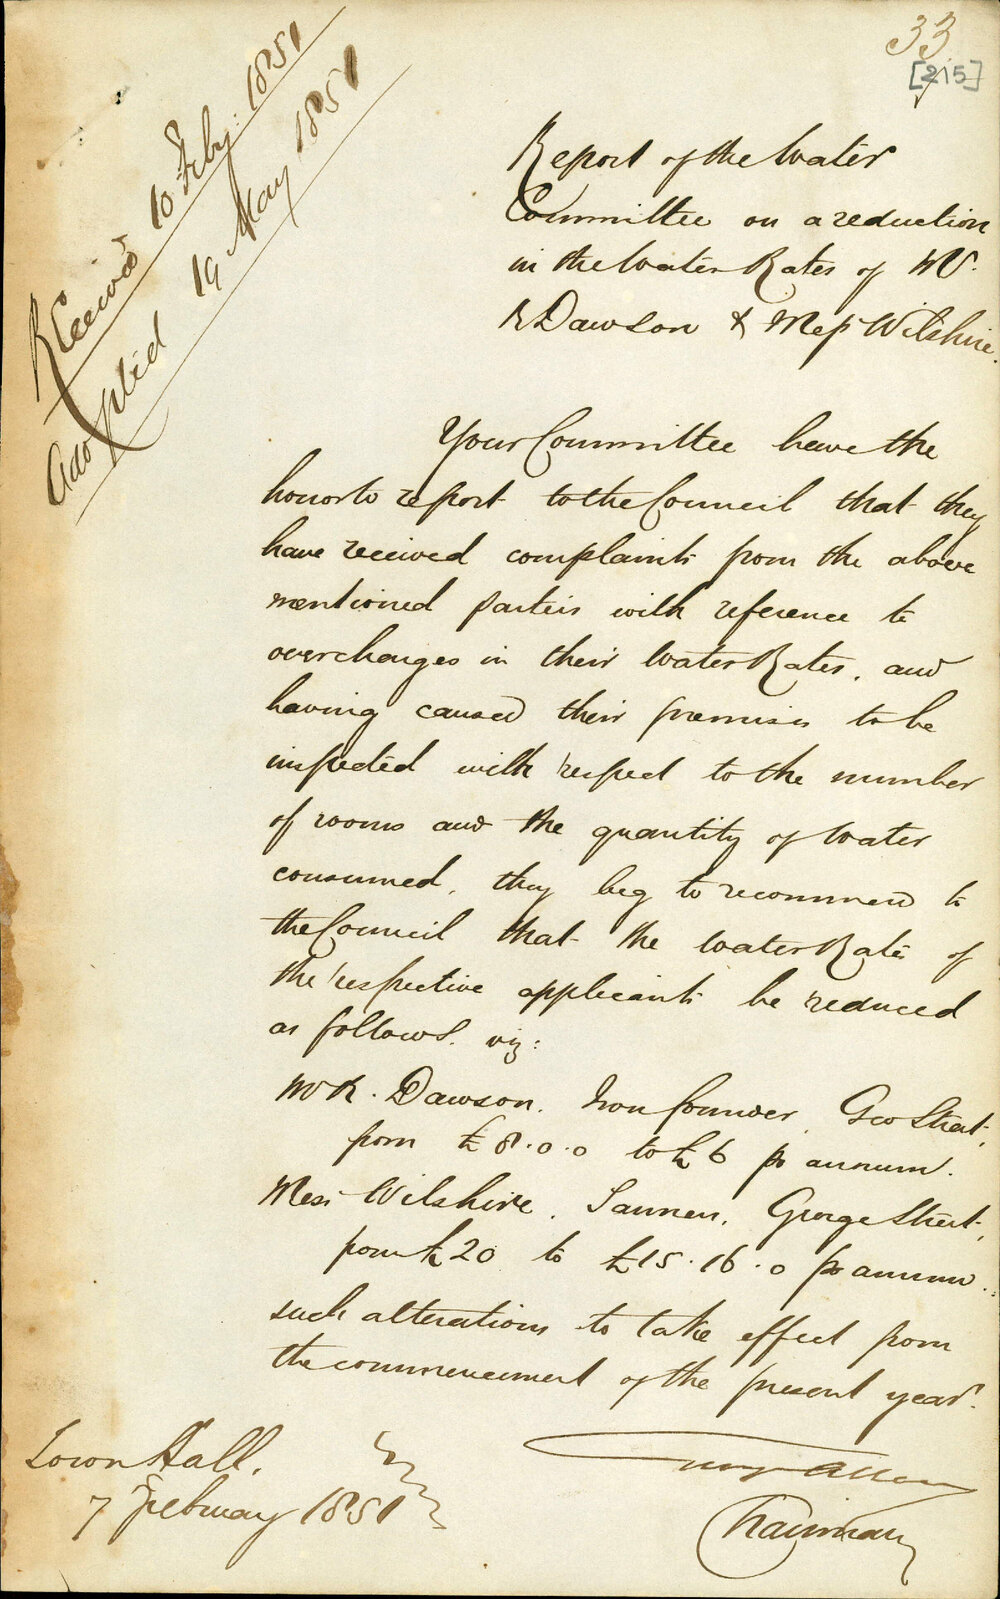 33
[215]
Received 10 Feby: 1851
Adopted 19 May 1851
Report of the Water
Committee on a reduction
in the Water Rates of Mr.
R Dawson & Mess Wilshire.
Your Committee have the
honor to report to the Council that they
have received complaints from the above
mentioned parties with reference to
overcharges in their Water Rates, and
having caused their premises to be
inspected with respect to the number
of rooms and the quantity of Water
consumed, they beg to recommend to
the Council that the Water Rate of
the respective applicants be reduced
as follows. viz:
Mr R. Dawson. Iron founder, Geo Street,
from £8.0.0 to £6 pr annum.
Mess Wilshire. Tanners. George Street,
from £20 to £15.16.0 pr annum.
such alterations to take effect from
the commencement of the present year.
Town Hall.
7 February 1851
Allen
Chairman